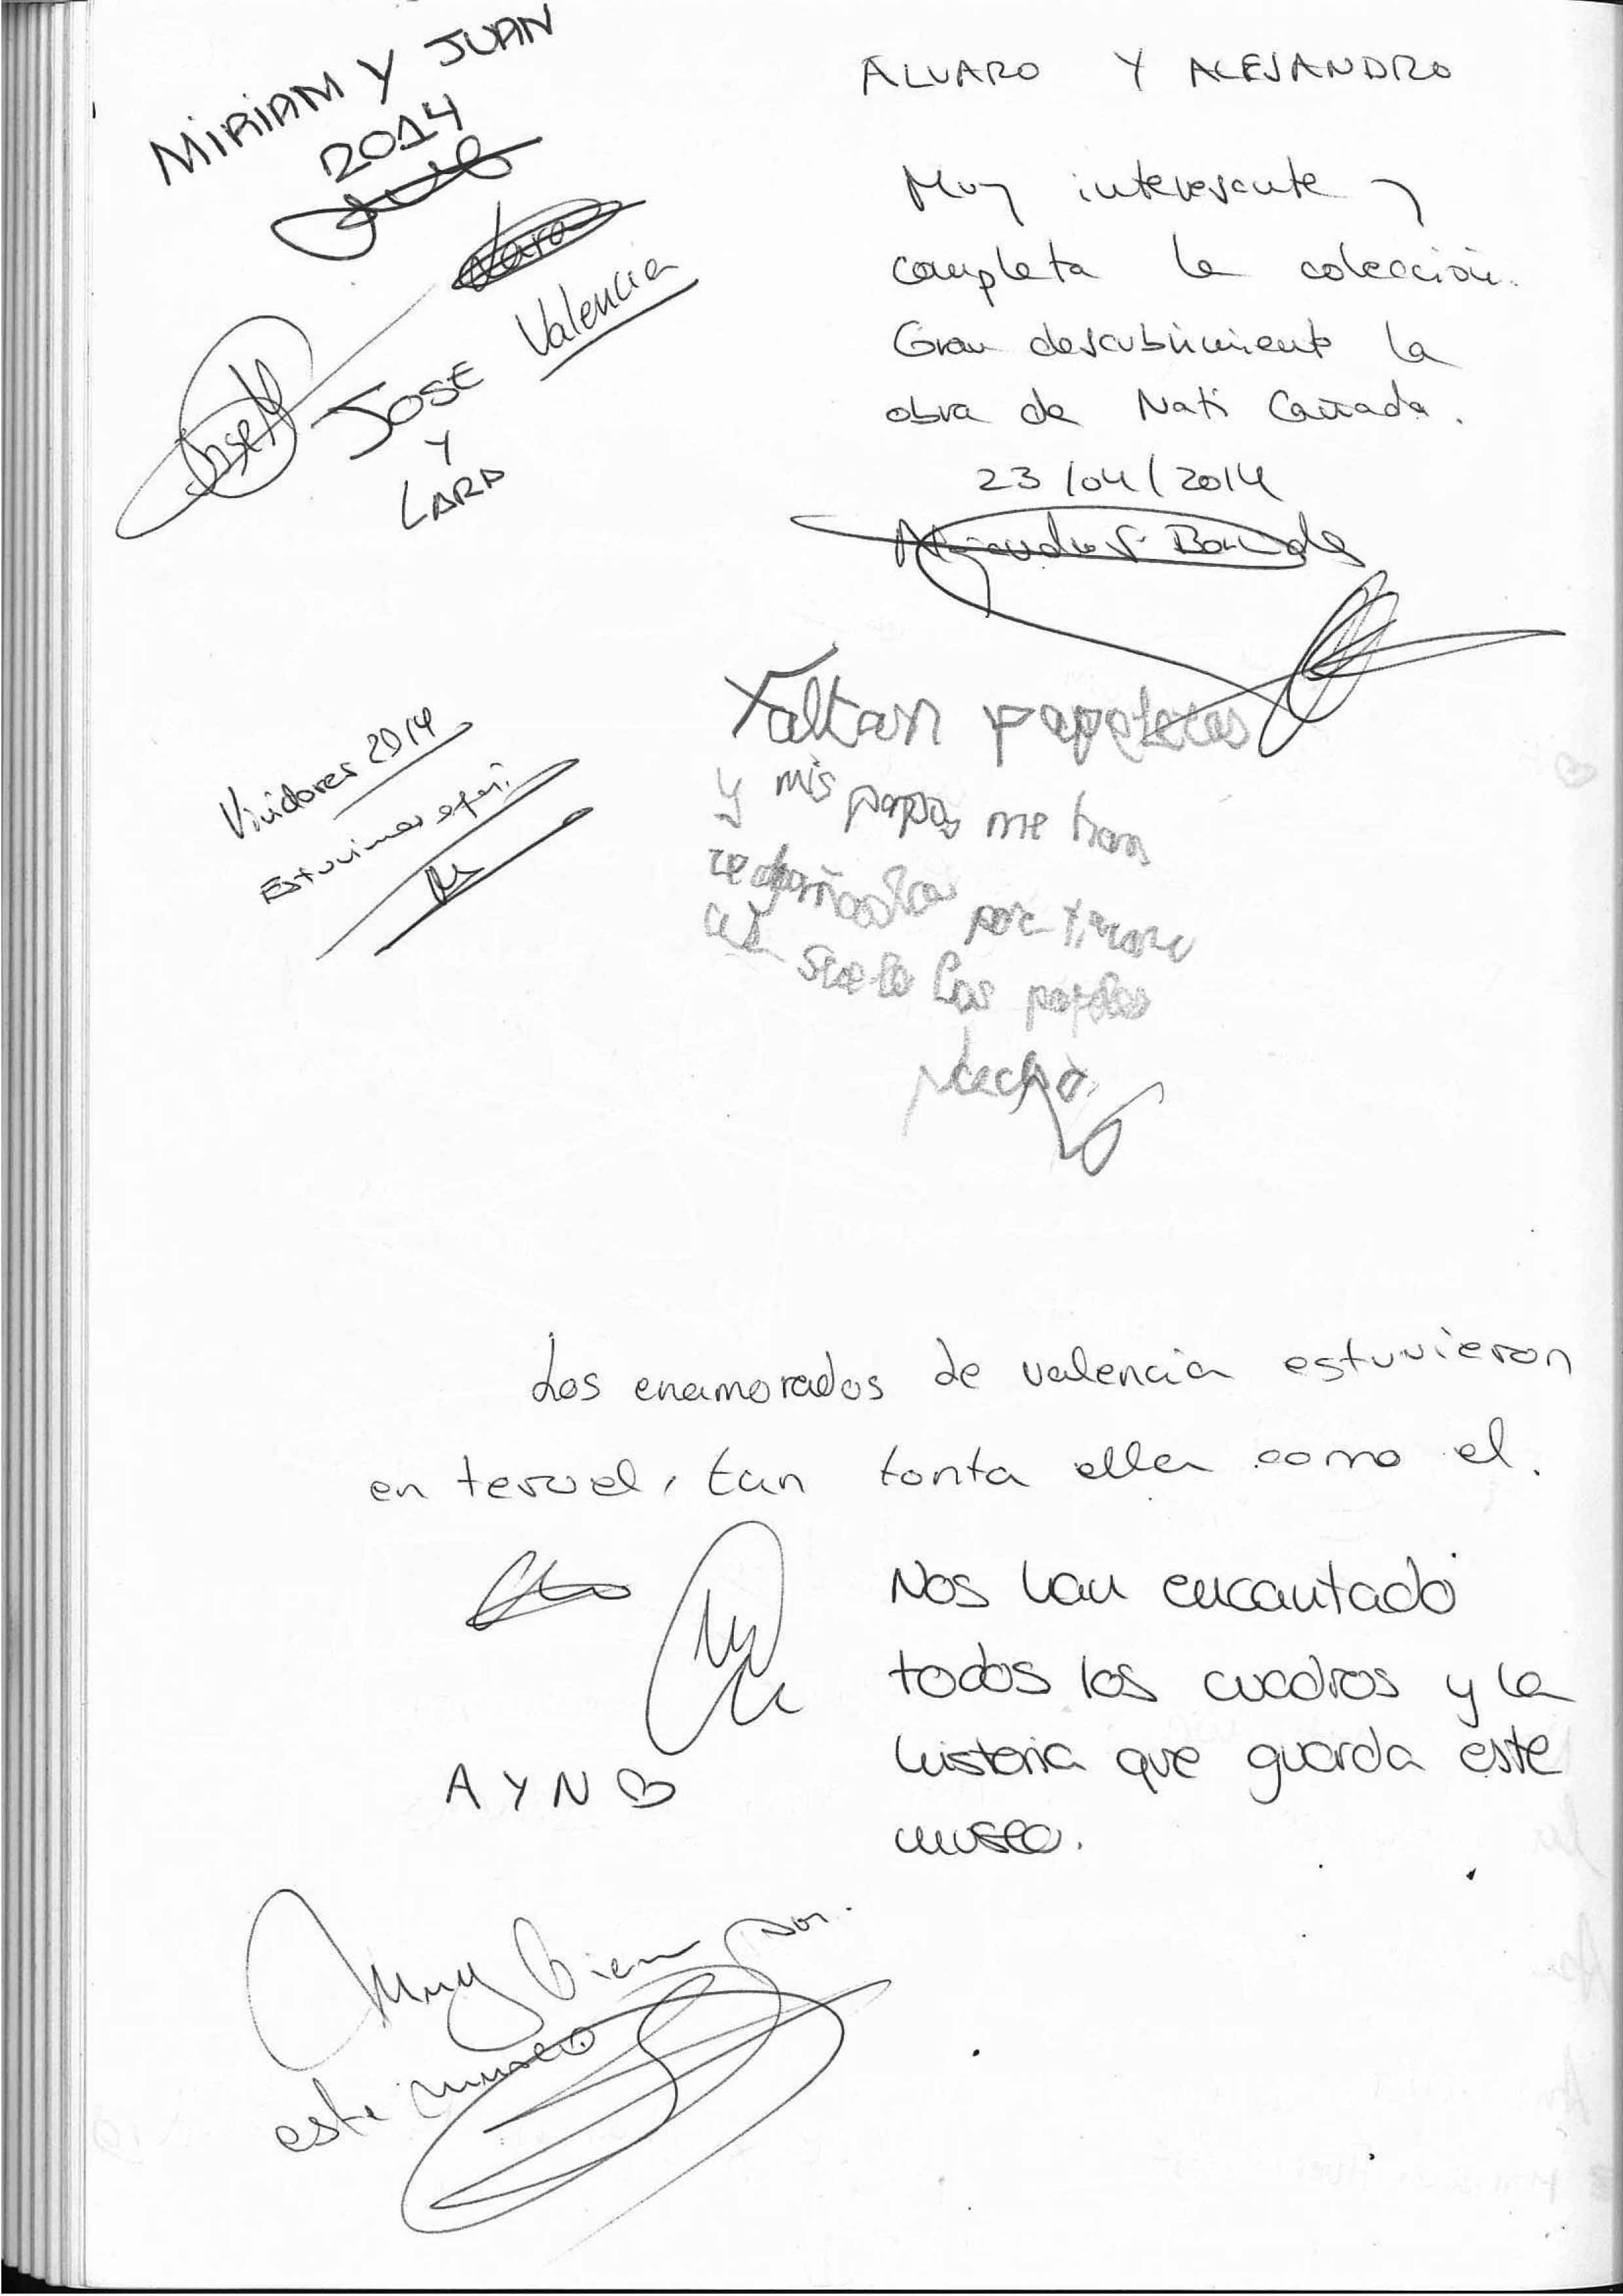 MIRIAM Y JUAN
2014
Lara
Valencia
Jose M
JOSE
Y
LARA
ALVARO Y ALEJANDRO
Muy interesante y
completa la colección.
Gran descubrimiento la
obra de Nati Cañada.
23/04/2014
Vividores 2014
Estuvimos aquí.
Faltan papeleras
y mis papas me han
por tirar
al suelo los
Los enamorados de valencia estuvieron
en teruel, tan tonta ella como el.
A Y N
Nos han encantado
todos los cuadros y la
historia que guarda este
museo.
Muy bien por
este museo